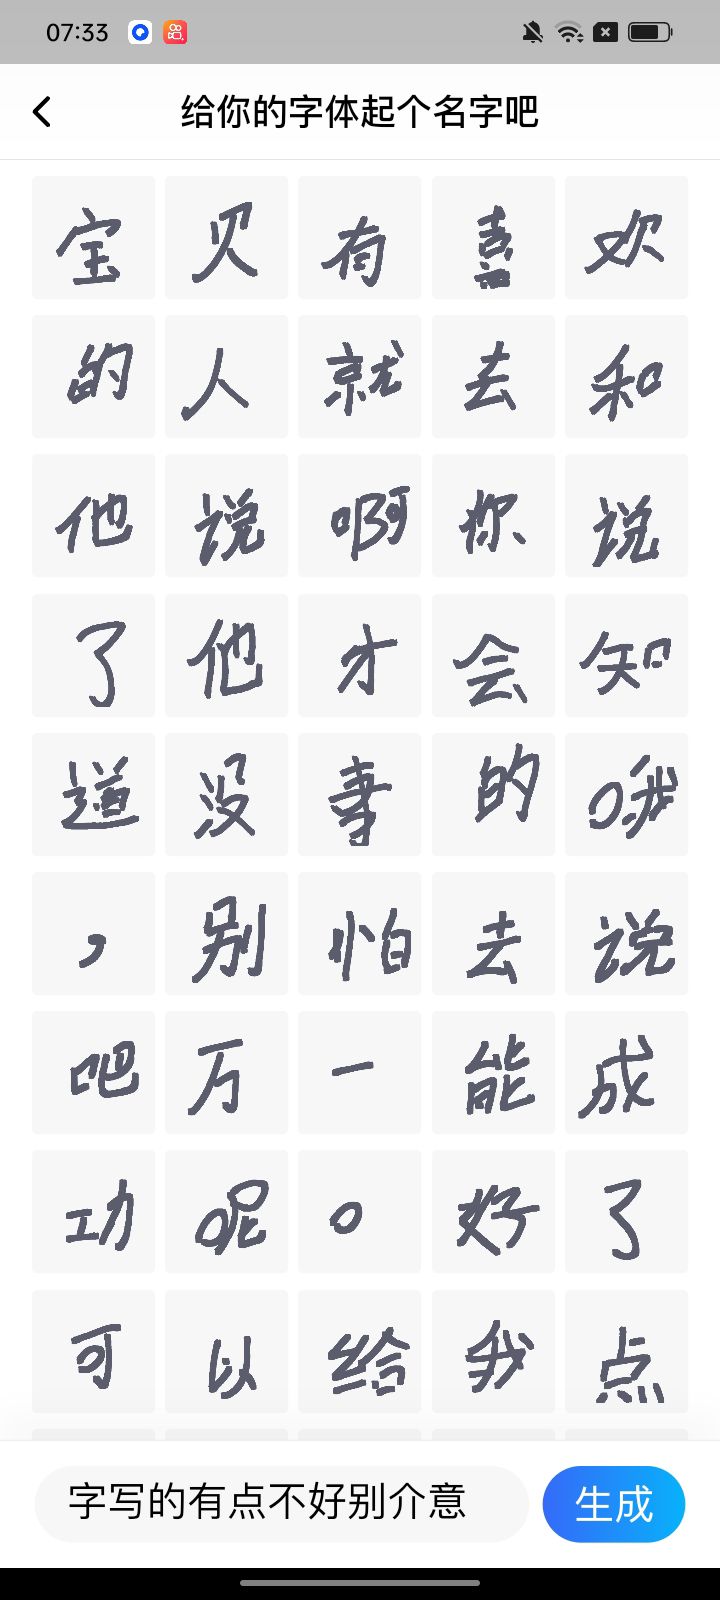 07:33
给你的字体起个名字吧
宝贝有喜欢
的人就去和
他说啊你说
了他才会知
道没事的哦
，别怕去说
吧万一能成
功呢。好了
可以给我点
字写的有点不好别介意
生成